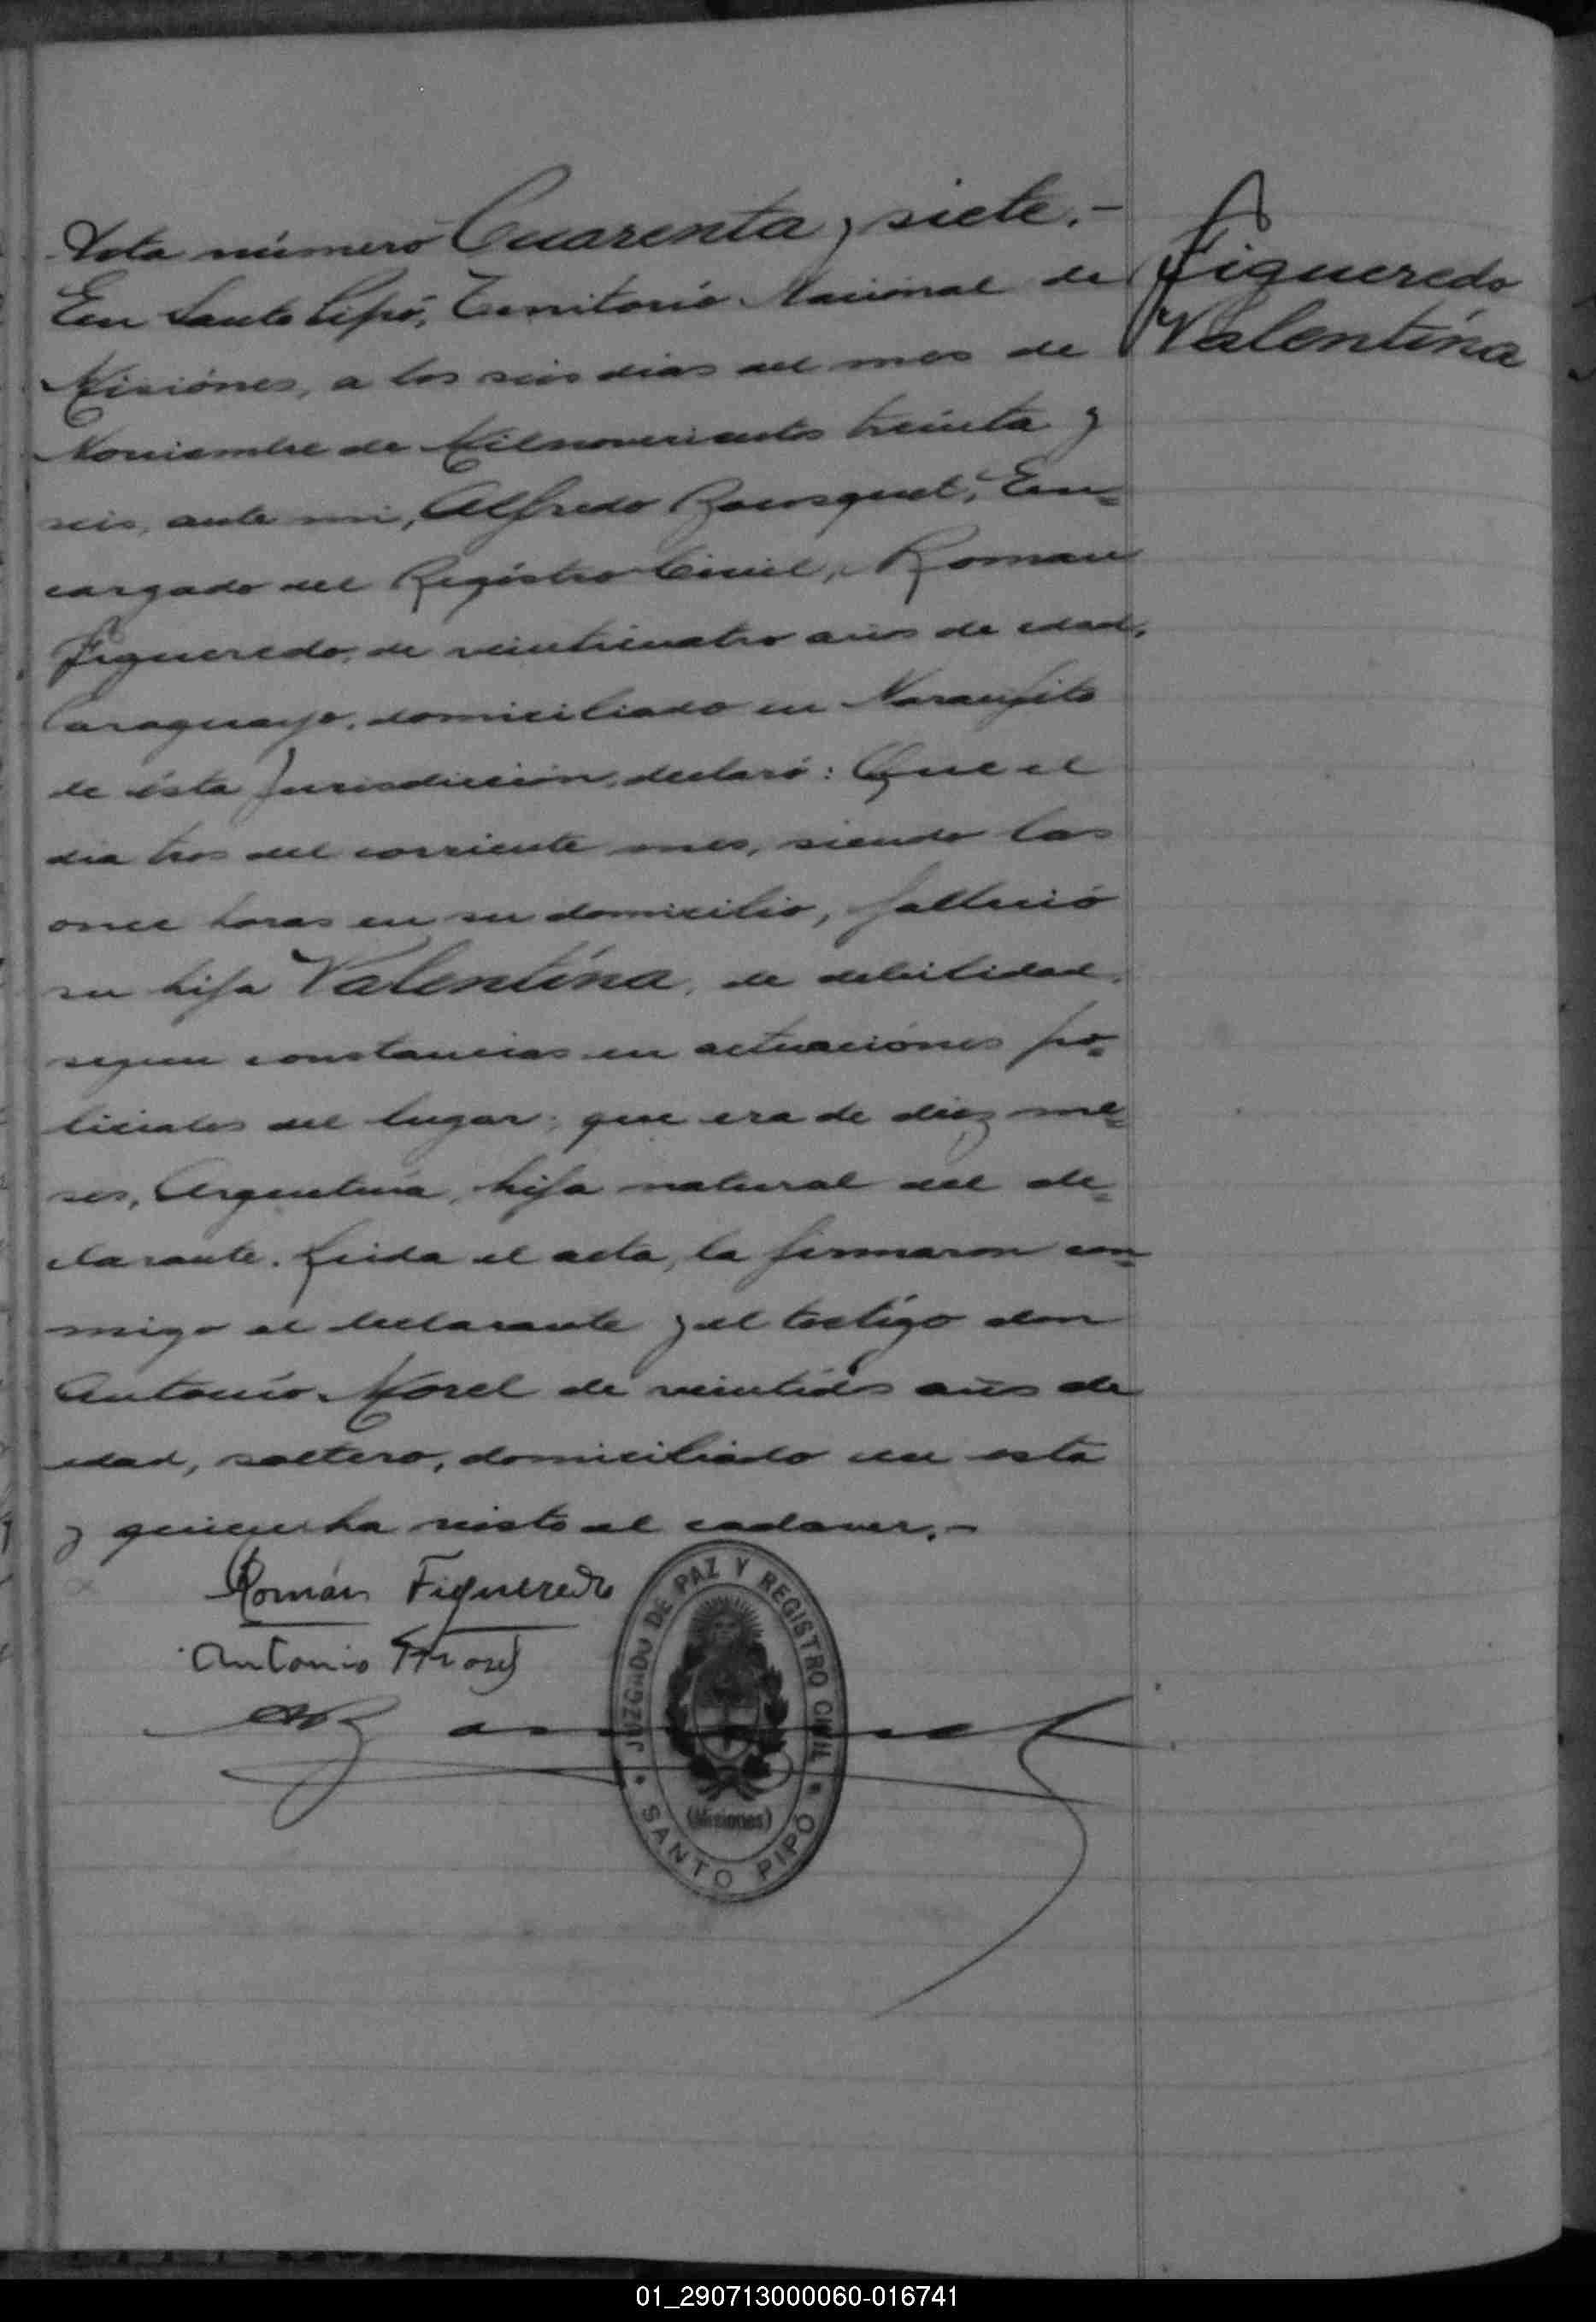 Acta número Cuarenta y siete.-
En Santo Pipó, Territorio Nacional de
Misiónes, a los seis dias del mes de
Noviembre de Mil novecientos treinta y
seis, ante mi, Alfredo Bousquet, En=
cargado del Registro Civil, Roman
Figueredo, de veinticuatro años de edad,
Paraguayo, domiciliado en Naranjito
de ésta Jurisdicción, declaró: Que el
dia tres del corriente mes, siendo las
once horas en su domicilio, falleció
su hija Valentína, de debilidad,
segun constancias en actuaciónes po=
liciales del lugar; que era de diez me=
ses, Argentina, hija natural del de=
clarante. Leida el acta, la firmaron con=
migo el declarante y el testígo don
Antonio Morel de veintidós años de
edad, soltero, domiciliado en esta
y quien ha visto el cadaver.-
Figueredo
Valentína
Román Figueredo
Antonio Morel
JUZGADO DE PAZ Y REGISTRO CIVIL
(Misiones)
SANTO PIPÓ
01_290713000060-016741